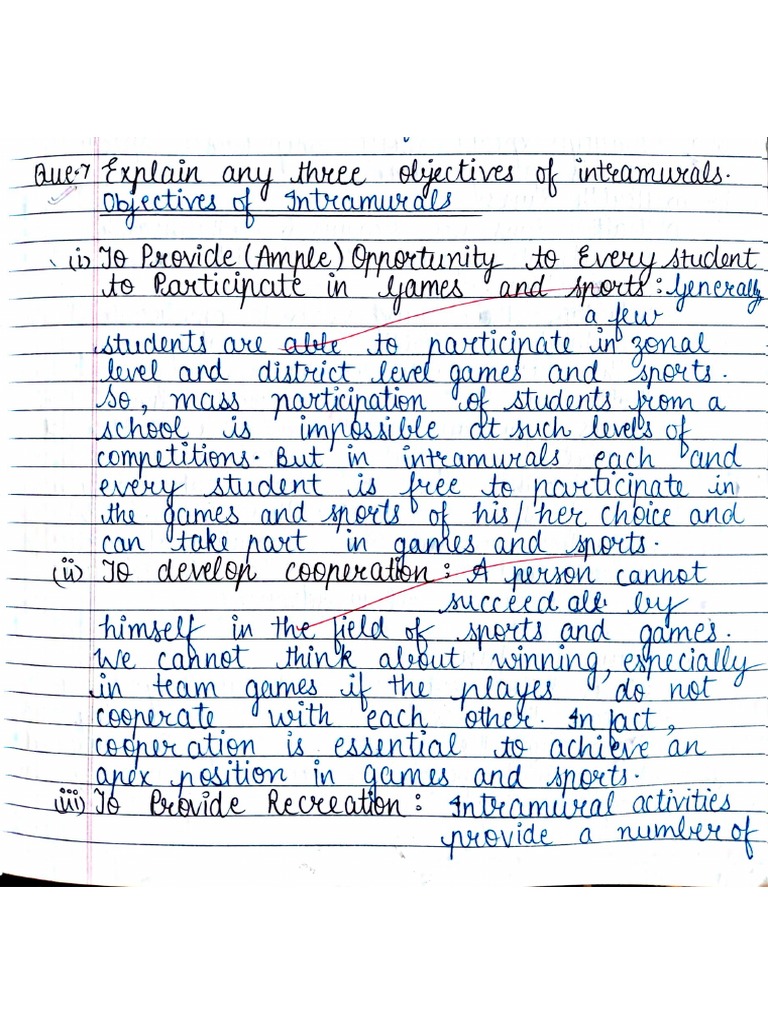 Que.7 Explain any three objectives of intramurals.
Objectives of Intramurals
(i) To Provide (Ample) Opportunity to Every student
to Participate in Games and sports: Generally
a few
students are able to participate in zonal
level and district level games and sports.
So, mass participation of students from a
school is impossible at such levels of
competitions. But in intramurals each and
every student is free to participate in
the games and sports of his/her choice and
can take part in games and sports.
(ii) To develop cooperation: A person cannot
succeed all by
himself in the field of sports and games.
We cannot think about winning, especially
in team games if the playes do not
cooperate with each other. In fact,
cooperation is essential to achieve an
apex position in games and sports.
(iii) To Provide Recreation: Intramural activities
provide a number of